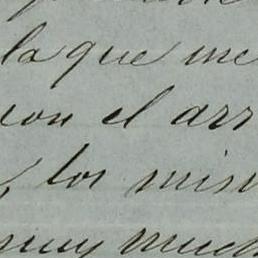 la que me
con el arr
los mism
muy much